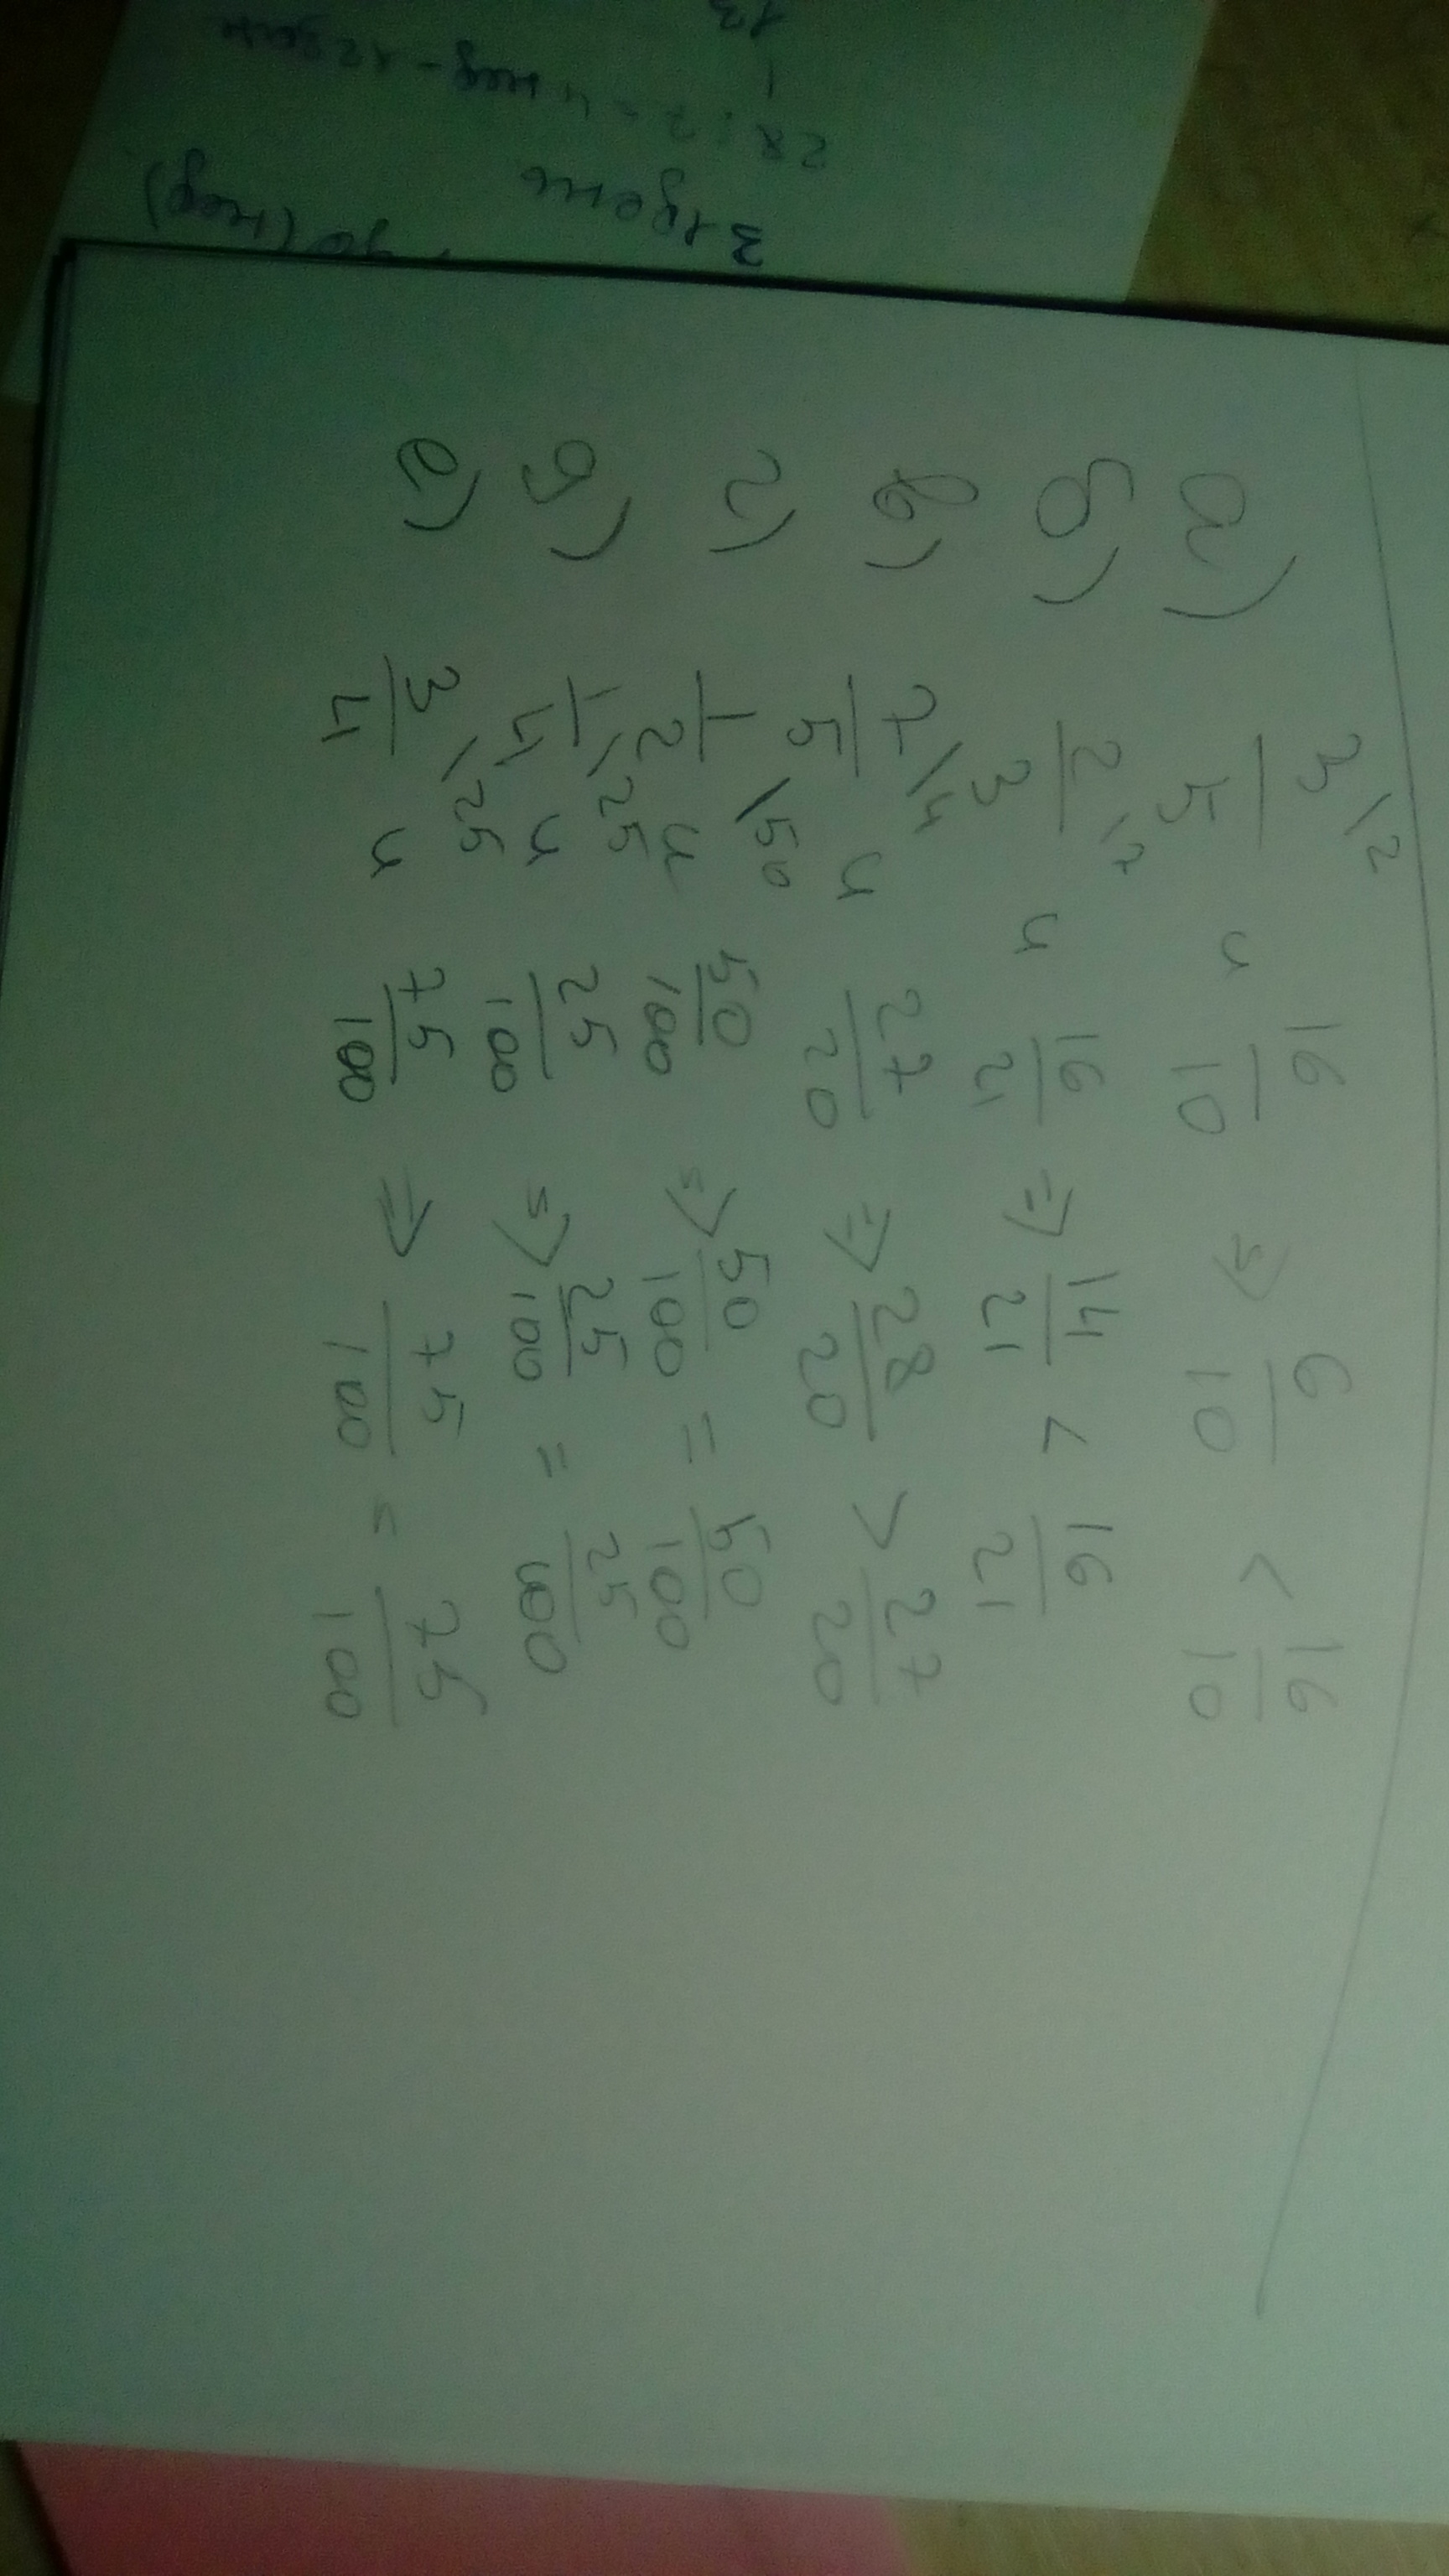 а) 3/5 \2 и 16/10 => 6/10 < 16/10
б) 2/3 \7 и 16/21 => 14/21 < 16/21
в) 7/5 \4 и 27/20 => 28/20 > 27/20
г) 1/2 \50 и 50/100 => 50/100 = 50/100
д) 1/4 \25 и 25/100 => 25/100 = 25/100
е) 3/4 \25 и 75/100 => 75/100 = 75/100
(нед)
3 · 1 день
28 : 7 = 4 нед - 12
13